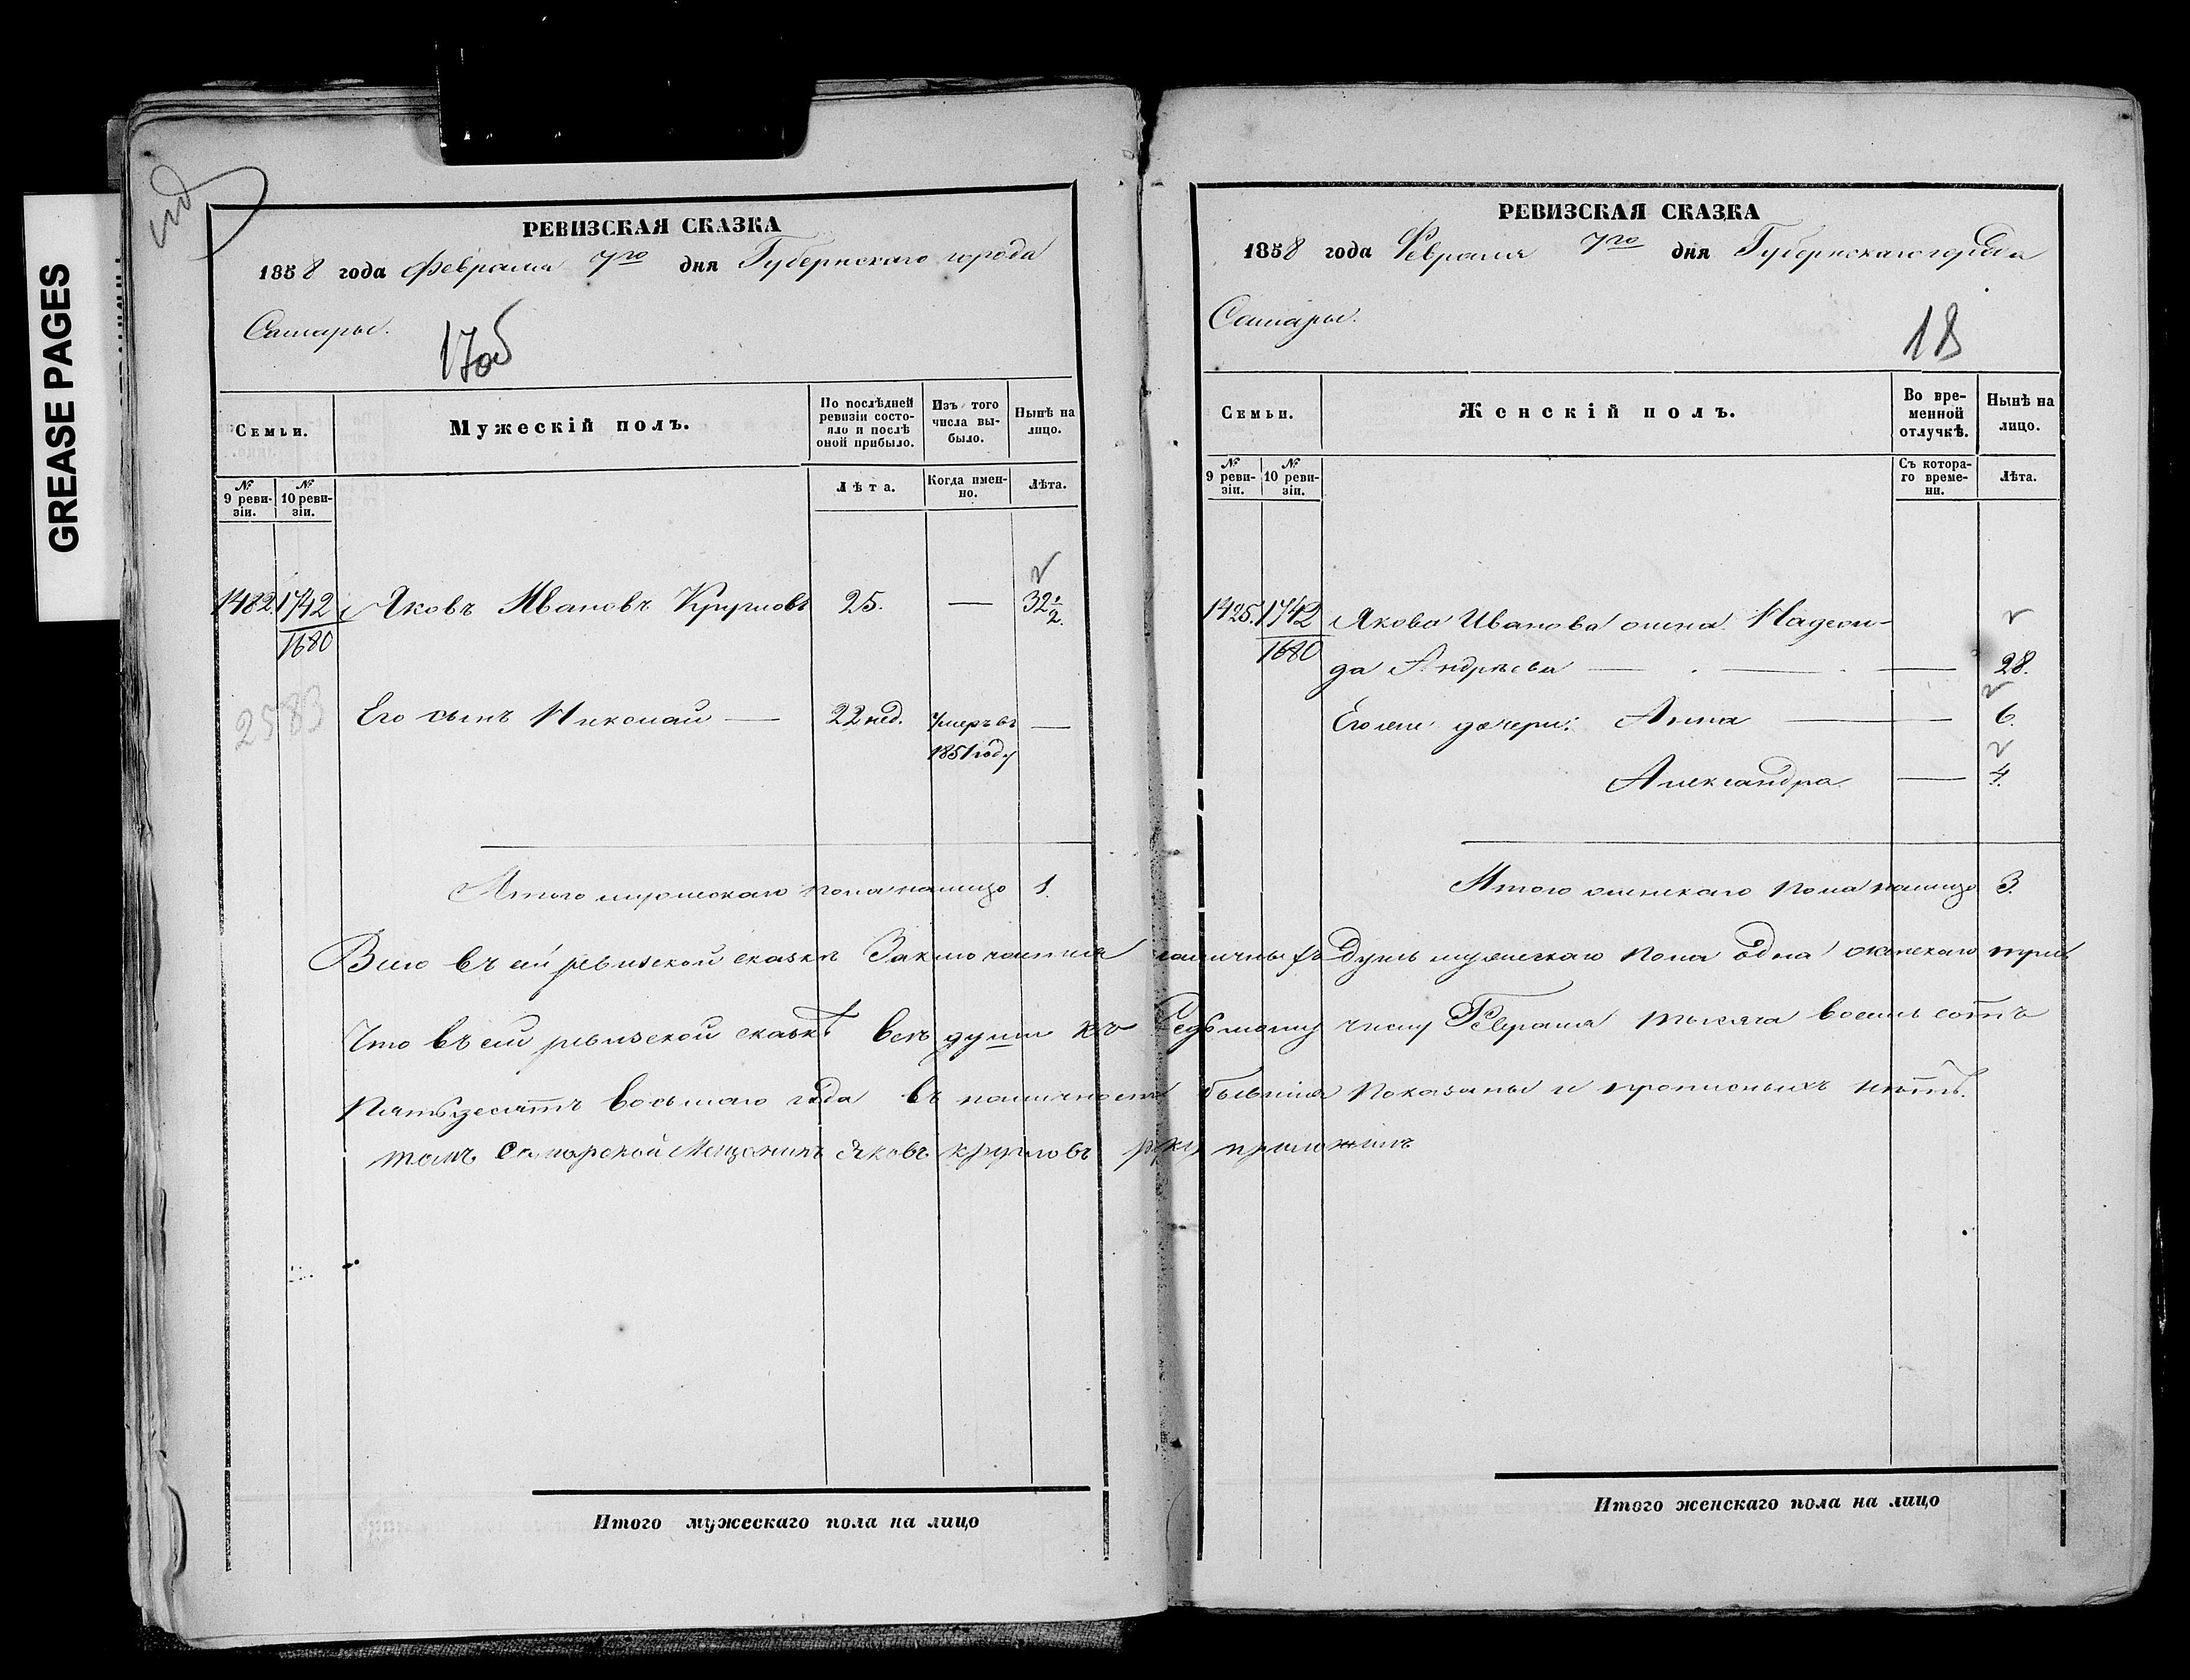 GREASE PAGES
РЕВИЗСКАЯ СКАЗКА
1858 года Февраля 7го дня Губернскаго города
Самары.
17об
Семьи.
Мужескій полъ.
По послѣдней ревизіи состояло и послѣ оной прибыло.
Изъ того числа выбыло.
Нынѣ на лицо.
№ 9 ревизіи.
№ 10 ревизіи.
Лѣта.
Когда именно.
Лѣта.
1482. 1742 Яковъ Ивановъ Кругловъ 25. — 32½.
1680
2583 Его сынъ Николай — 22 нед. Умеръ въ —
1851 году
Итого мужескаго пола налицо 1.
РЕВИЗСКАЯ СКАЗКА
1858 года Февраля 7го дня Губернскаго города
Самары.
18
Семьи.
Женскій полъ.
Во временной отлучкѣ.
Нынѣ на лицо.
№ 9 ревизіи.
№ 10 ревизіи.
Съ котораго времени.
Лѣта.
1425. 1742 Якова Иванова жена Надеж-
1680 да Андрѣева — 28.
Его же дочери: Анна — 6.
Александра — 4.
Итого женскаго пола налицо 3.
Всего въ сей ревизской сказкѣ Заключается наличныхъ Душъ мужескаго пола одна женскаго три.
Что въ сей ревизской сказкѣ всѣ души къ Седьмому числу Февраля тысяча восемь сотъ
Пятьдесятъ восьмаго года въ наличности бывшія показаны и прописныхъ нѣтъ.
томъ Самарской Мещенинъ Яковъ кругловъ руку приложилъ
Итого мужескаго пола на лицо
Итого женскаго пола на лицо